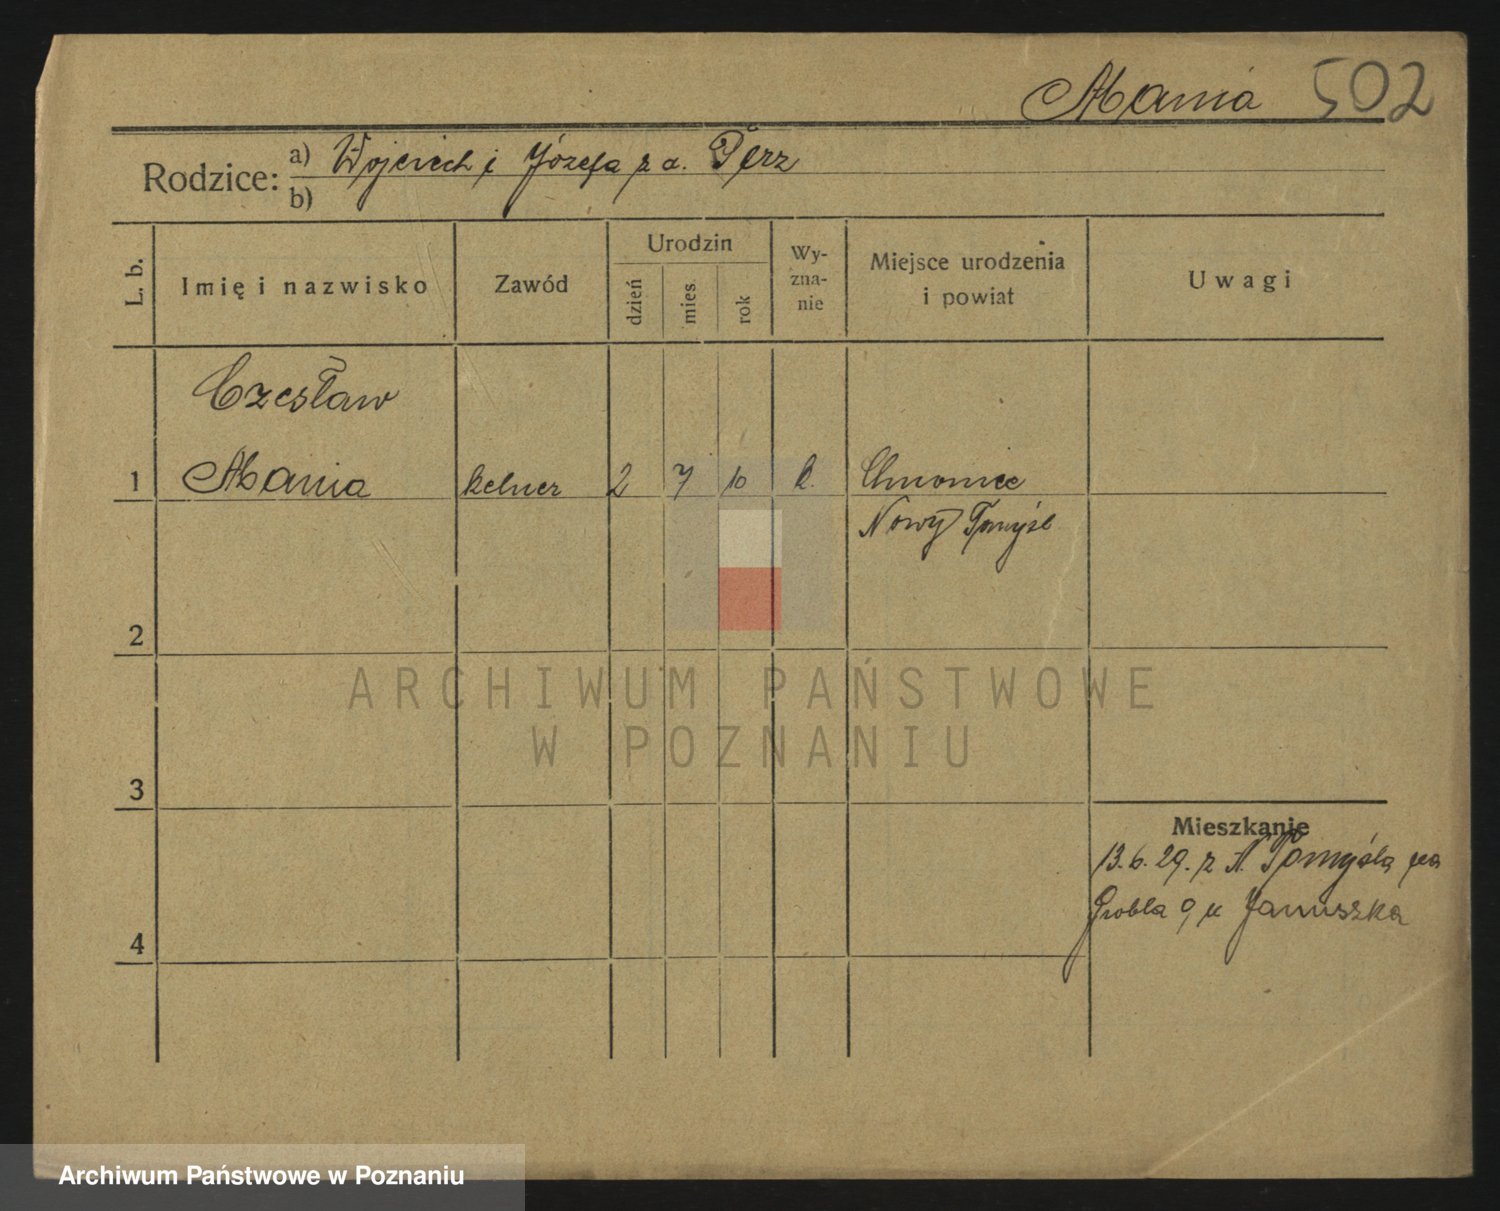 Mania 502
Rodzice: a) Wojciech i Józefa z d. Perz
b)
L. b. Imię i nazwisko Zawód Urodzin dzień mies. rok Wy-zna-nie Miejsce urodzenia i powiat Uwagi
Czesław
1 Mania kelner 2 7 10 k. Chmonice
Nowy Tomyśl
2
3
Mieszkanie
13.6.29. z N. Tomyśla na
Grobla 9 u Januszka
4
ARCHIWUM PAŃSTWOWE
W POZNANIU
Archiwum Państwowe w Poznaniu